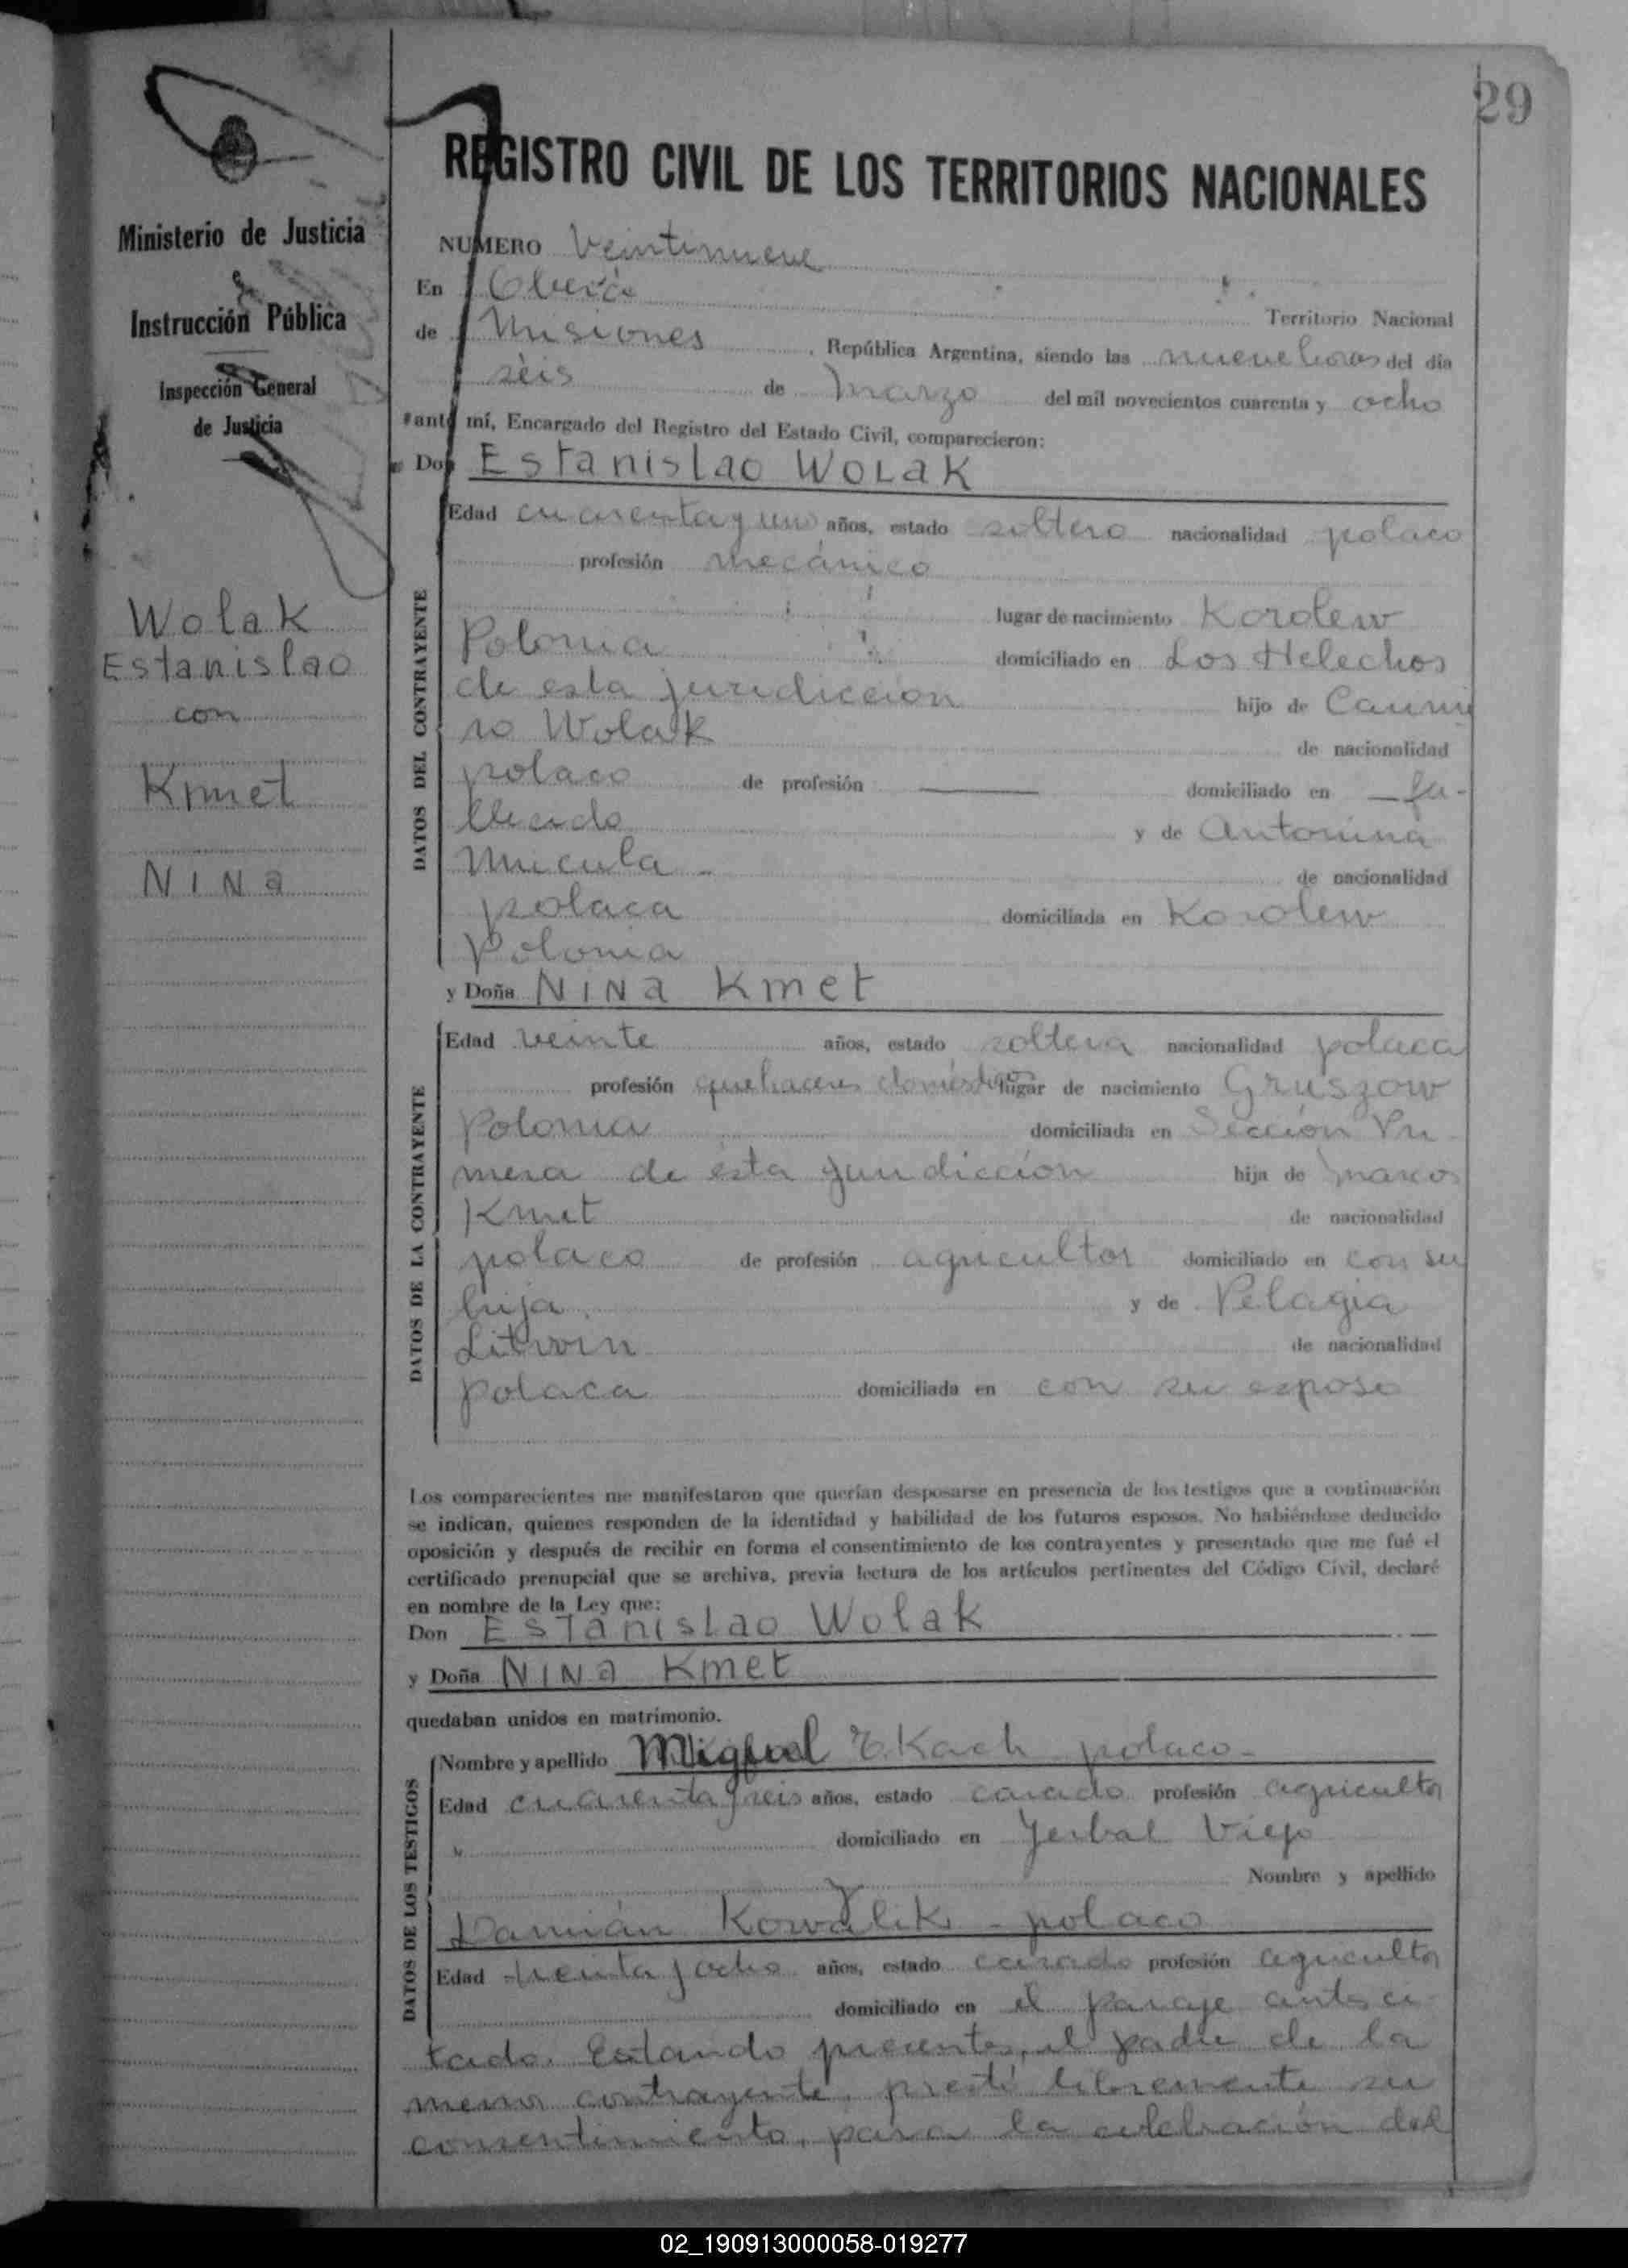 29
Ministerio de Justicia
e
Instrucción Pública
Inspección General
de Justicia
Wolak
Estanislao
con
Kmet
Nina
REGISTRO CIVIL DE LOS TERRITORIOS NACIONALES
NUMERO Veintinueve
En Oberá
Territorio Nacional
de Misiones, República Argentina, siendo las nueve horas del día
séis de Marzo del mil novecientos cuarenta y ocho
ante mí, Encargado del Registro del Estado Civil, comparecieron:
Don Estanislao Wolak
DATOS DEL CONTRAYENTE
Edad cuarenta y uno años, estado soltero nacionalidad polaco
profesión mecánico
lugar de nacimiento Korolew
Polonia domiciliado en Los Helechos
de esta juridiccion hijo de Casimi
ro Wolak de nacionalidad
polaco de profesión — domiciliado en — fa-
llecido y de Antonina
Micula - de nacionalidad
polaca domiciliada en Korolew
Polonia
y Doña Nina Kmet
DATOS DE LA CONTRAYENTE
Edad veinte años, estado soltera nacionalidad polaca
profesión quehaceres domésticos lugar de nacimiento Gruszow
Polonia domiciliada en Sección Pri
mera de ésta juridicción hija de Marcos
Kmet de nacionalidad
polaco de profesión agricultor domiciliado en con su
hija y de Pelagia
Litwin de nacionalidad
polaca domiciliada en con su esposo
Los comparecientes me manifestaron que querían desposarse en presencia de los testigos que a continuación
se indican, quienes responden de la identidad y habilidad de los futuros esposos. No habiéndose deducido
oposición y después de recibir en forma el consentimiento de los contrayentes y presentado que me fué el
certificado prenupcial que se archiva, previa lectura de los artículos pertinentes del Código Civil, declaré
en nombre de la Ley que:
Don Estanislao Wolak
y Doña Nina Kmet
quedaban unidos en matrimonio.
DATOS DE LOS TESTIGOS
Nombre y apellido Miguel Kach polaco-
Edad cuarenta y seis años, estado casado profesión agricultor
domiciliado en Yerbal Viejo
Nombre y apellido
Damián Kowalik - polaco
Edad treinta y ocho años, estado casado profesión agricultor
domiciliado en el paraje antes ci
tado. Estando presente, el padre de la
menor contrayente, prestó libremente su
consentimiento, para la celebración del
02_190913000058-019277